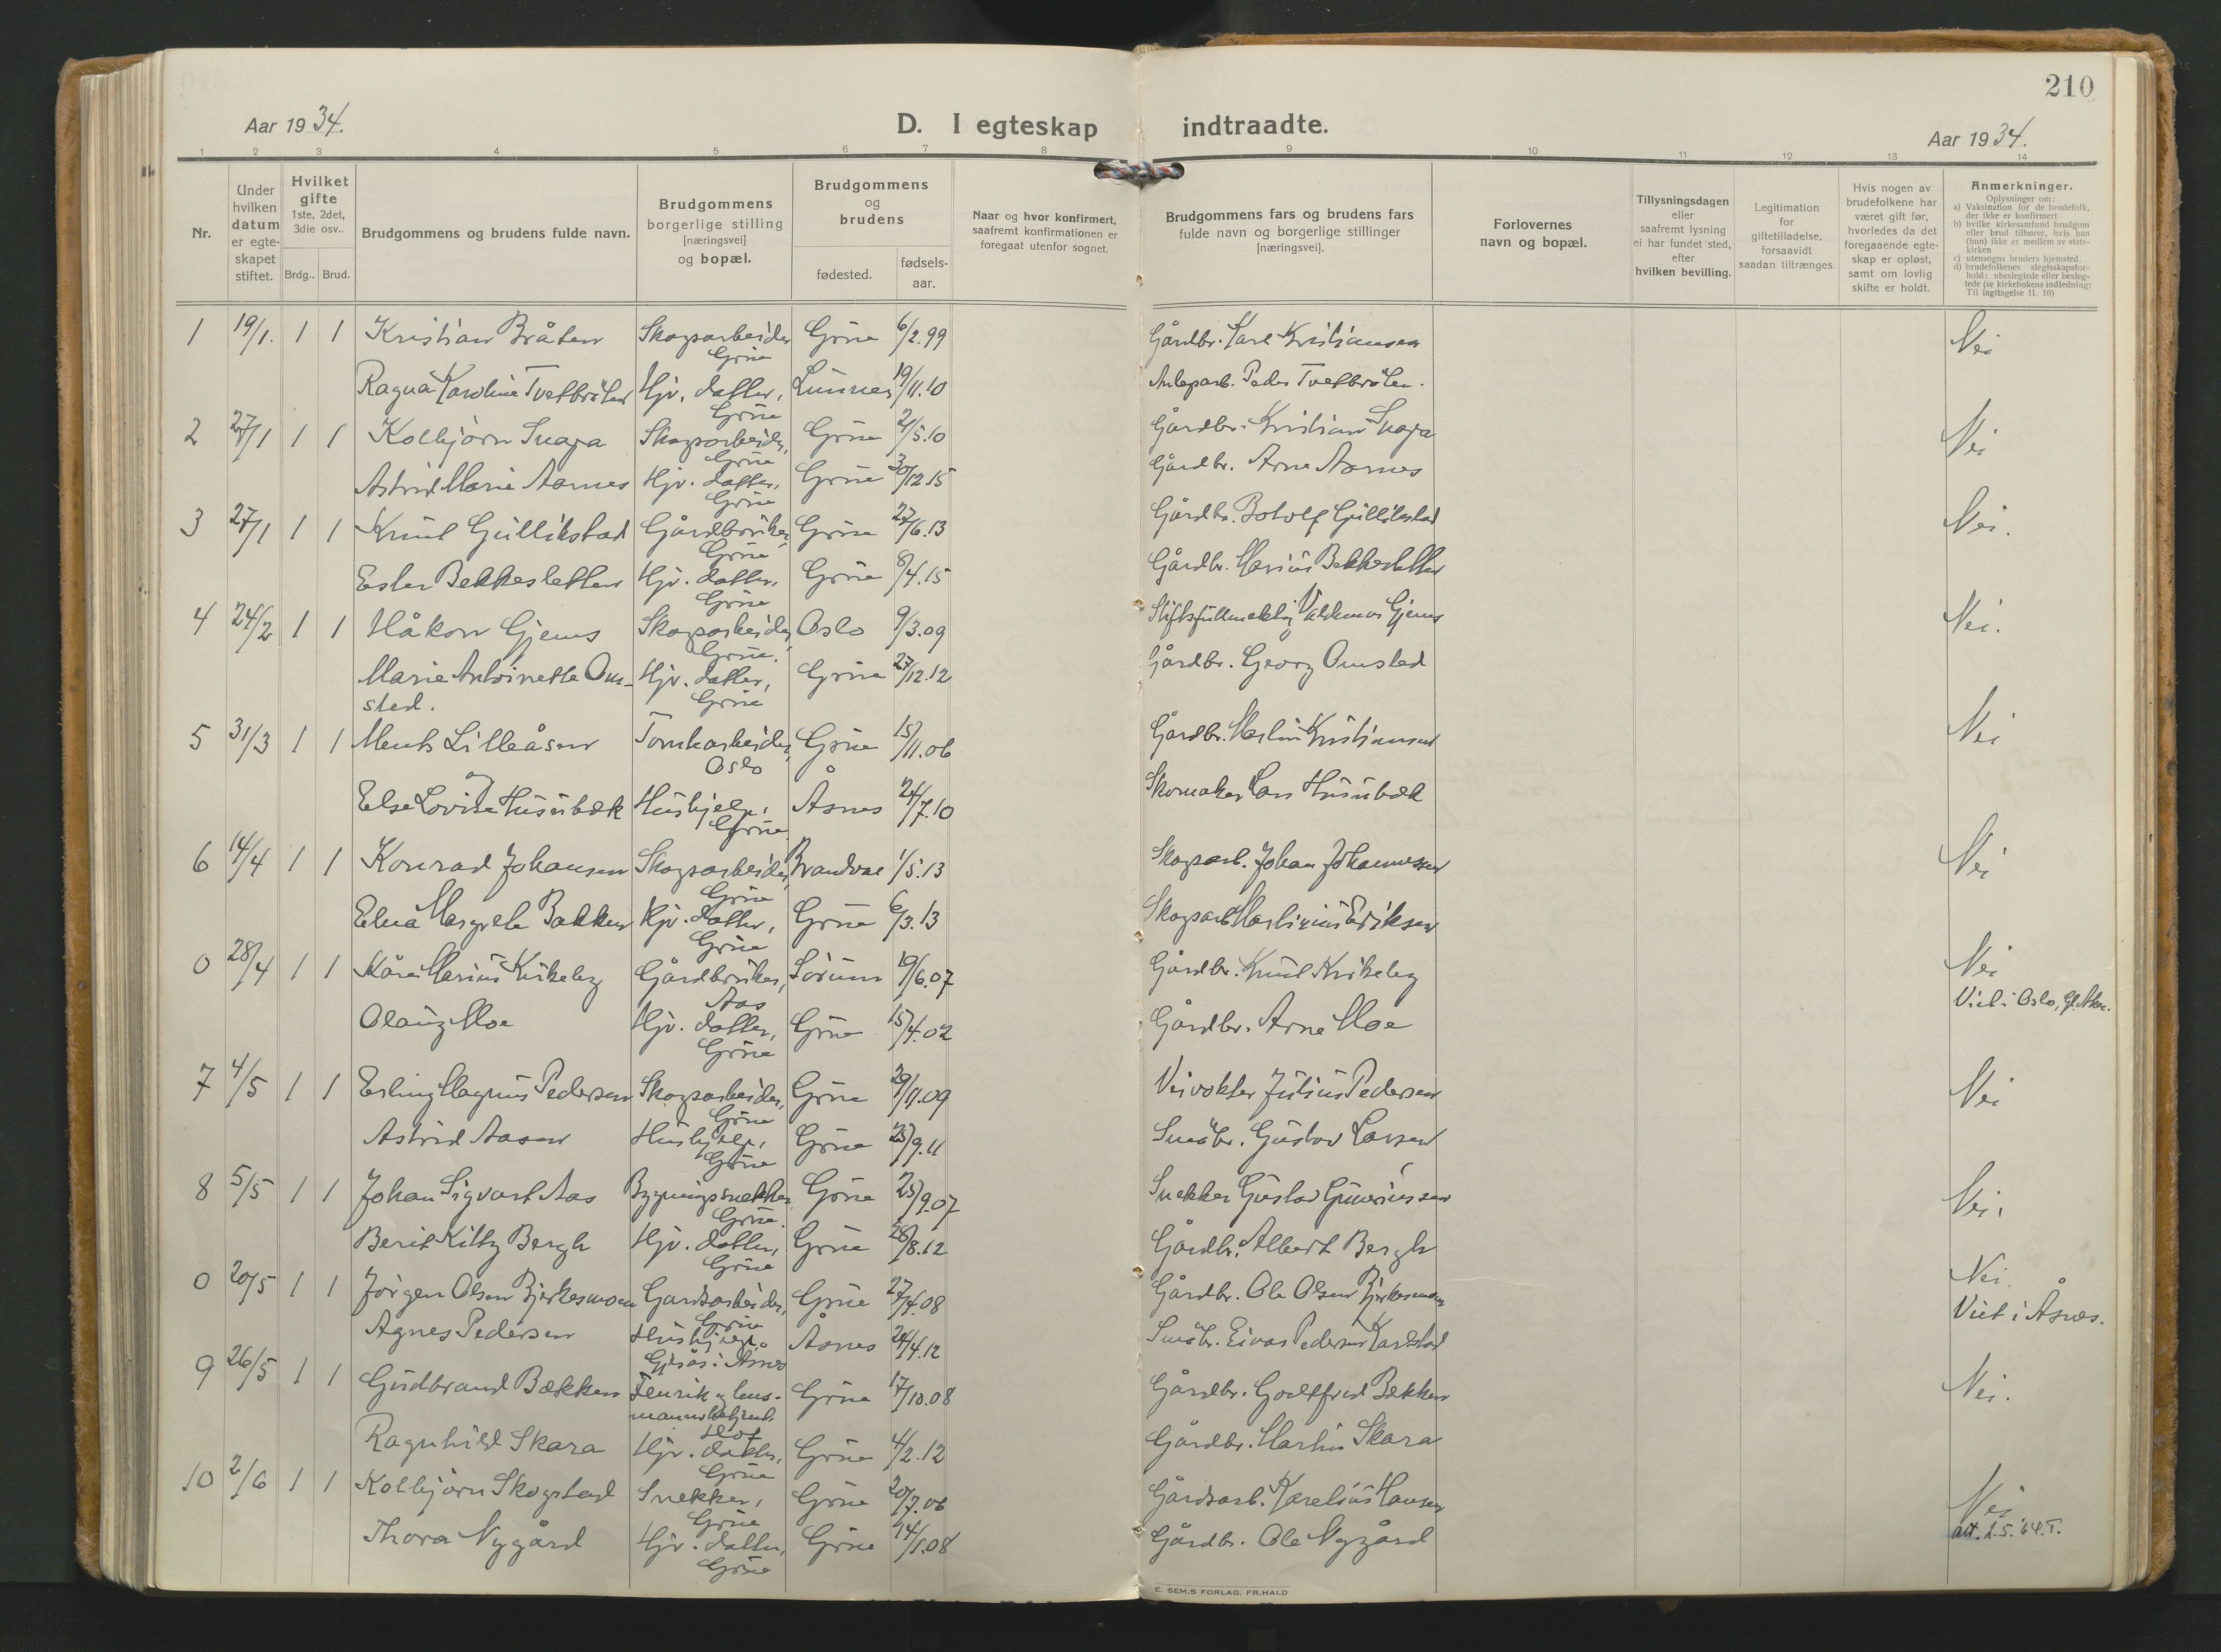 210
Aar 1934.
D. I egteskap indtraadte.
Aar 1934.
1 2 3 4 5 6 7 8 9 10 11 12 13 14
Nr.
Under hvilken datum er egte-skapet stiftet.
Hvilket gifte 1ste, 2det, 3die osv..
Brdg.. Brud.
Brudgommens og brudens fulde navn.
Brudgommens borgerlige stilling [næringsvei] og bopæl.
Brudgommens og brudens
fødested.
fødsels-aar.
Naar og hvor konfirmert, saafremt konfirmationen er foregaat utenfor sognet.
Brudgommens fars og brudens fars fulde navn og borgerlige stillinger [næringsvei].
Forlovernes navn og bopæl.
Tillysningsdagen eller saafremt lysning ei har fundet sted, efter hvilken bevilling.
Legitimation for giftetilladelse, forsaavidt saadan tiltrænges.
Hvis nogen av brudefolkene har været gift før, hvorledes da det foregaaende egte-skap er opløst, samt om lovlig skifte er holdt.
Anmerkninger.
Oplysninger om:
a) Vaksination for de brudefolk, der ikke er konfirmert
b) hvilke kirkesamfund brudgom eller brud tilhører, hvis han (hun) ikke er medlem av stats-kirken
c) utensogns bruders hjemsted.
d) brudefolkenes slegtsskapsfor-hold: ubeslegtede eller besleg-tede (se kirkebokens indledning: Til iagttagelse II. 10)
1 19/1. 1 1 Kristian Bråten Skogsarbeider Grue Grue 6/2.99 Gårdbr. Karl Kristiansen Nei
Ragna Karoline Tvetbråten Hjv. datter, Grue Lunner 19/11.10 Anlegsarb. Peder Tvetbråten.
2 27/1 1 1 Kolbjørn Snaga Skogsarbeider, Grue Grue 21/5.10 Gårdbr. Kristian Snaga Nei
Astrid Marie Aarnes Hjv. datter, Grue Grue 30/12.15 Gårdbr. Arne Aarnes
3 27/1 1 1 Knut Gullikstad Gårdbruker, Grue Grue 27/6.13 Gårdbr. Botolf Gullikstad Nei.
Ester Bekkesletten Hjv. datter, Grue Grue 8/4.15 Gårdbr. Marius Bekkesletten
4 24/2 1 1 Håkon Gjems Skogsarbeider, Grue. Oslo 9/3.09 Stiftsfullmektig Valdemar Gjems Nei.
Marie Antoinette Om- Hjv. datter, Grue Grue 27/12.12 Gårdbr. Georg Omsted
sted.
5 31/3 1 1 Ments Lilleåsen Tomtearbeider, Oslo Grue 15/11.06 Gårdbr. Martin Kristiansen Nei
Else Lovise Husubæk Hushjelp, Grue. Åsnes 24/7.10 Skomaker Lars Husubæk
6 14/4 1 1 Konrad Johansen Skogsarbeider, Grue Brandval 1/5.13 Skogsarb. Johan Johannessen Nei
Elna Margrete Bakken Hjv. datter, Grue Grue 6/3.13 Skogsarb. Martinius Eriksen
0 28/4 1 1 Kåre Marius Kirkeby Gårdbruker, Aas Sørum 19/6.07 Gårdbr. Knut Kirkeby Nei
Viet i Oslo, Gl. Aker.
Olaug Moe Hjv. datter, Grue Grue 15/4.02 Gårdbr. Arne Moe
7 4/5 1 1 Erling Magnus Pedersen Skogsarbeider, Grue Grue 29/11.09 Veivokter Julius Pedersen Nei
Astrid Aasen Hushjelp, Grue Grue 23/9.11 Småbr. Gustav Larsen
8 5/5 1 1 Johan Sigvart Aas Bygningssnekker Grue. Grue 25/9.07 Snekker Gustav Gunerussen Nei.
Berit Kitty Bergh Hjv. datter, Grue Grue 28/8.12 Gårdbr. Albert Bergh
0 20/5 1 1 Jörgen Olsen Bjerkesmoen Gardsarbeider, Grue Grue 27/4.08 Gårdbr. Ole Olsen Bjerkesmoen Nei.
Viet i Åsnes.
Agnes Pedersen Hushjelp, Gjesås i Åsnes Åsnes 24/4.12 Småbr. Eivas Pedersen Karlstad
9 26/5 1 1 Gudbrand Bækken Fenrik og lens-mannsbetjent Hof Grue 17/10.08 Gårdbr. Godtfred Bækken Nei.
Ragnhild Skara Hjv. datter, Grue Grue 4/2.12 Gårdbr. Martin Skara
10 2/6 1 1 Kolbjørn Skogstad Snekker, Grue Grue 20/7.06 Gårdsarb. Karelius Hansen Nei
Thora Nygård Hjv. datter, Grue Grue 14/1.08 Gårdbr. Ole Nygård
E. SEM,S FORLAG, FR.HALD